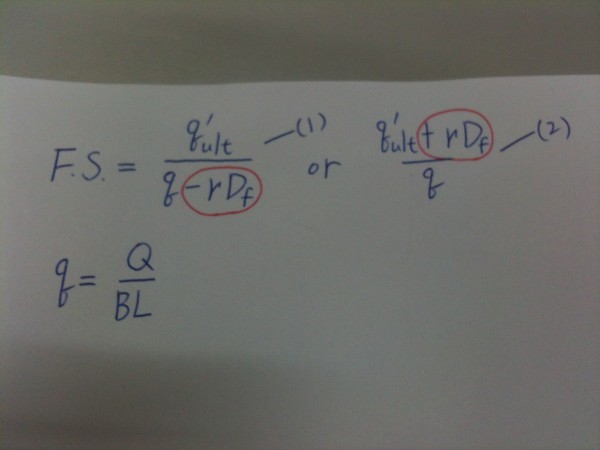 F.S. = q'ult / (q - rDf) —(1) or (q'ult + rDf) / q —(2)
q = Q / BL